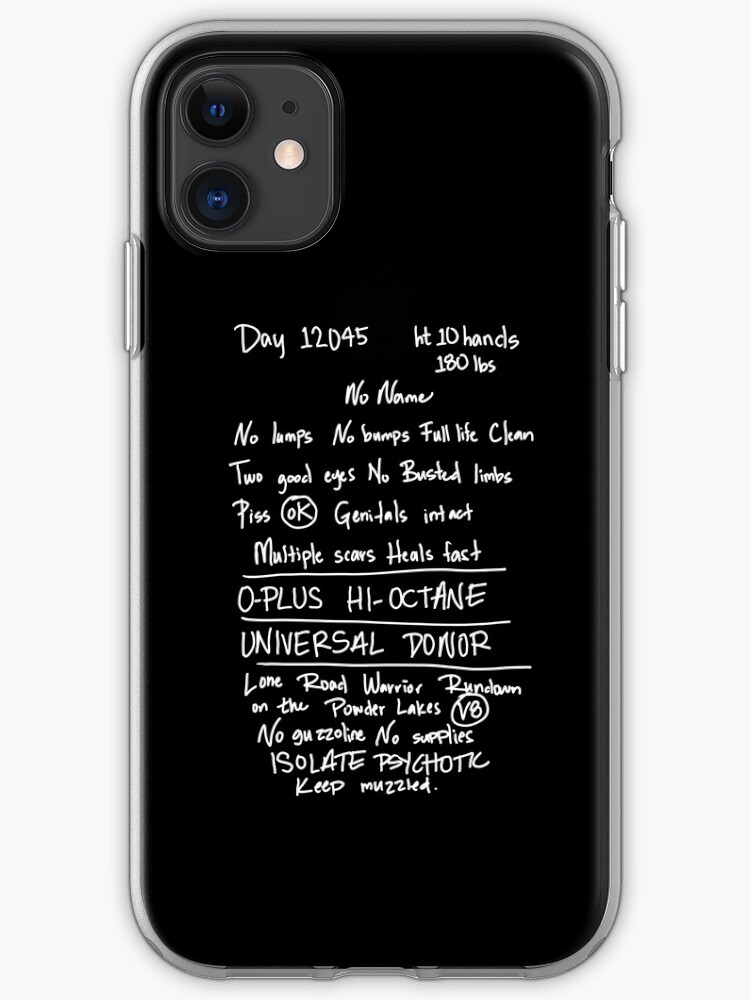 Day 12045 ht 10 hands
180 lbs
No Name
No lumps No bumps Full life Clean
Two good eyes No Busted limbs
Piss OK Genitals intact
Multiple scars Heals fast
O-PLUS HI-OCTANE
UNIVERSAL DONOR
Lone Road Warrior Rundown
on the Powder Lakes V8
No guzzoline No supplies
ISOLATE PSYCHOTIC
Keep muzzled.